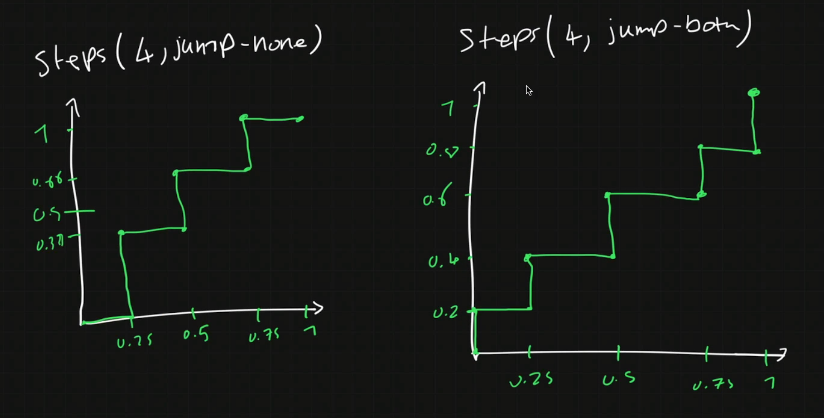 Steps(4, jump-none)
1
0.66
0.5
0.33
0.25 0.5 0.75 1
Steps(4, jump-both)
1
0.8
0.6
0.4
0.2
0.25 0.5 0.75 1